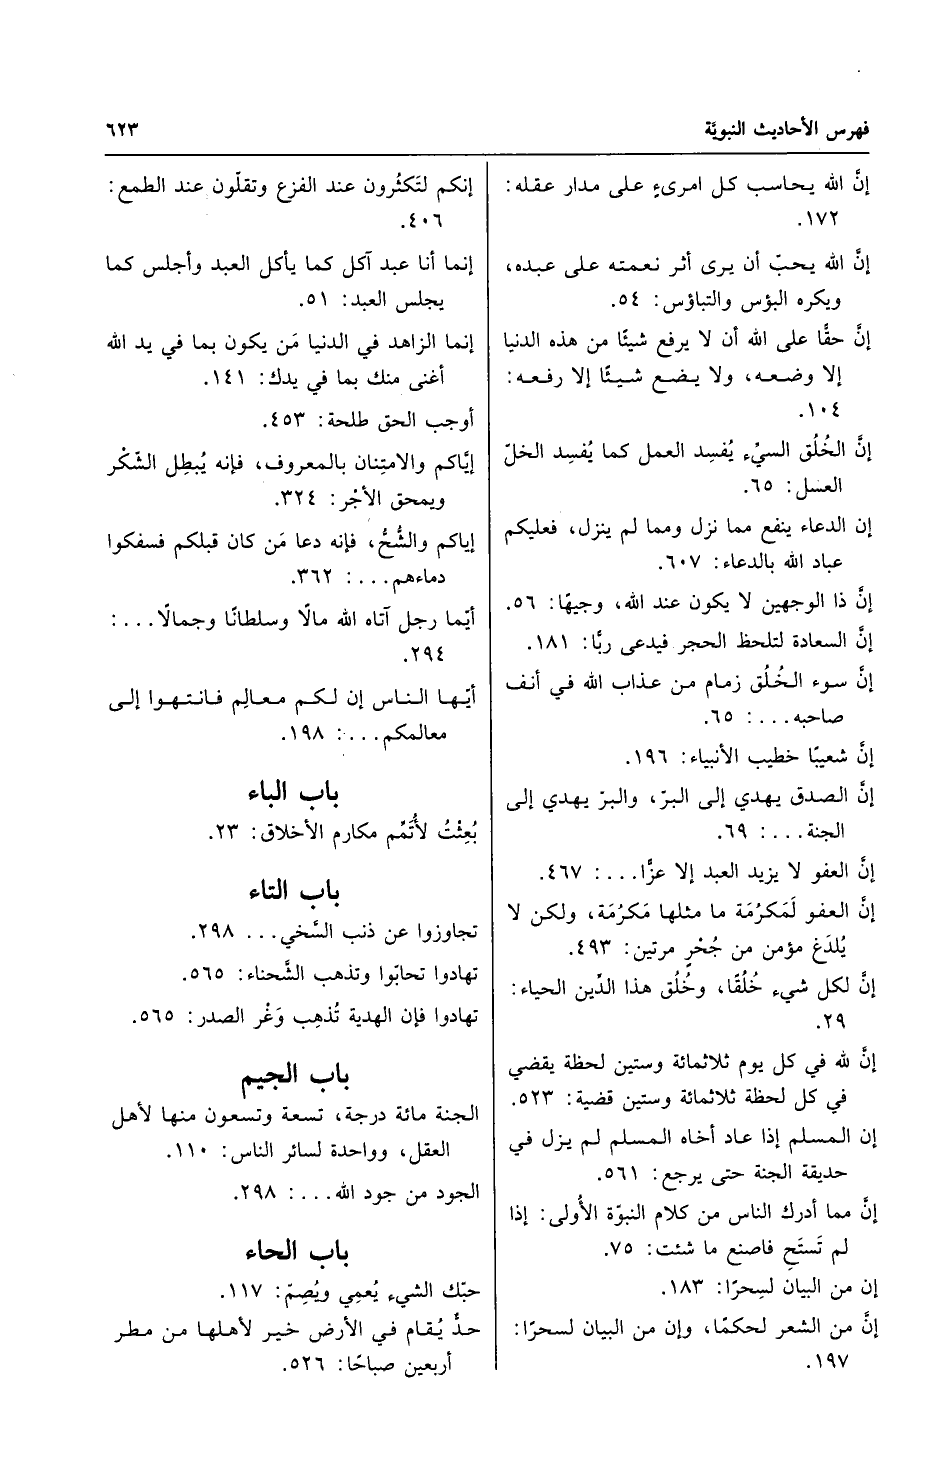 فهرس الأحاديث النبويَّة
٦٢٣
إنَّ الله يحاسب كل امرىءٍ على مدار عقله:
١٧٢.
إنَّ الله يحبّ أن يرى أثر نعمته على عبده،
ويكره البؤس والتباؤس: ٥٤.
إنَّ حقًّا على الله أن لا يرفع شيئًا من هذه الدنيا
إلا وضعه، ولا يضع شيئًا إلا رفعه:
١٠٤.
إنَّ الخُلُق السيْء يُفسِد العمل كما يُفسِد الخلّ
العسل: ٦٥.
إن الدعاء ينفع مما نزل ومما لم ينزل، فعليكم
عباد الله بالدعاء: ٦٠٧.
إنَّ ذا الوجهين لا يكون عند الله، وجيهًا: ٥٦.
إنَّ السعادة لتلحظ الحجر فيدعى ربًّا: ١٨١.
إنَّ سوء الخُلُق زمام من عذاب الله في أنف
صاحبه...: ٦٥.
إنَّ شعيبًا خطيب الأنبياء: ١٩٦.
إنَّ الصدق يهدي إلى البرّ، والبرّ يهدي إلى
الجنة...: ٦٩.
إنَّ العفو لا يزيد العبد إلا عزًّا...: ٤٦٧.
إنَّ العفو لَمَكرُمَة ما مثلها مَكرُمَة، ولكن لا
يُلدَغ مؤمن من جُحْرٍ مرتين: ٤٩٣.
إنَّ لكل شيء خُلُقًا، وخُلُق هذا الدِّين الحياء:
٢٩.
إنَّ لله في كل يوم ثلاثمائة وستين لحظة يقضي
في كل لحظة ثلاثمائة وستين قضية: ٥٢٣.
إن المسلم إذا عاد أخاه المسلم لم يزل في
حديقة الجنة حتى يرجع: ٥٦١.
إنَّ مما أدرك الناس من كلام النبوّة الأُولى: إذا
لم تَستَحِ فاصنع ما شئت: ٧٥.
إن من البيان لسِحرًا: ١٨٣.
إنَّ من الشعر لحكمًا، وإن من البيان لسحرًا:
١٩٧.
إنكم لتَكثُرون عند الفزع وتقلّون عند الطمع:
٤٠٦.
إنما أنا عبد آكل كما يأكل العبد وأجلس كما
يجلس العبد: ٥١.
إنما الزاهد في الدنيا مَن يكون بما في يد الله
أغنى منك بما في يدك: ١٤١.
أوجب الحق طلحة: ٤٥٣.
إيَّاكم والامتِنان بالمعروف، فإنه يُبطِل الشّكْر
ويمحق الأجْر: ٣٢٤.
إياكم والشُّحُ، فإنه دعا مَن كان قبلكم فسفكوا
دماءهم...: ٣٦٢.
أيّما رجل آتاه الله مالًا وسلطانًا وجمالًا...:
٢٩٤.
أيّها الناس إن لكم معالِم فانتهوا إلى
معالمكم...: ١٩٨.
باب الباء
بُعِثْتُ لأُتَمِّم مكارم الأخلاق: ٢٣.
باب التاء
تجاوزوا عن ذنب السَّخي... ٢٩٨.
تهادوا تحابّوا وتذهب الشَّحناء: ٥٦٥.
تهادوا فإن الهدية تُذهِب وَغْر الصدر: ٥٦٥.
باب الجيم
الجنة مائة درجة، تسعة وتسعون منها لأهل
العقل، وواحدة لسائر الناس: ١١٠.
الجود من جود الله...: ٢٩٨.
باب الحاء
حبّك الشيء يُعمِي ويُصِمّ: ١١٧.
حدٌّ يُقام في الأرض خير لأهلها من مطر
أربعين صباحًا: ٥٢٦.